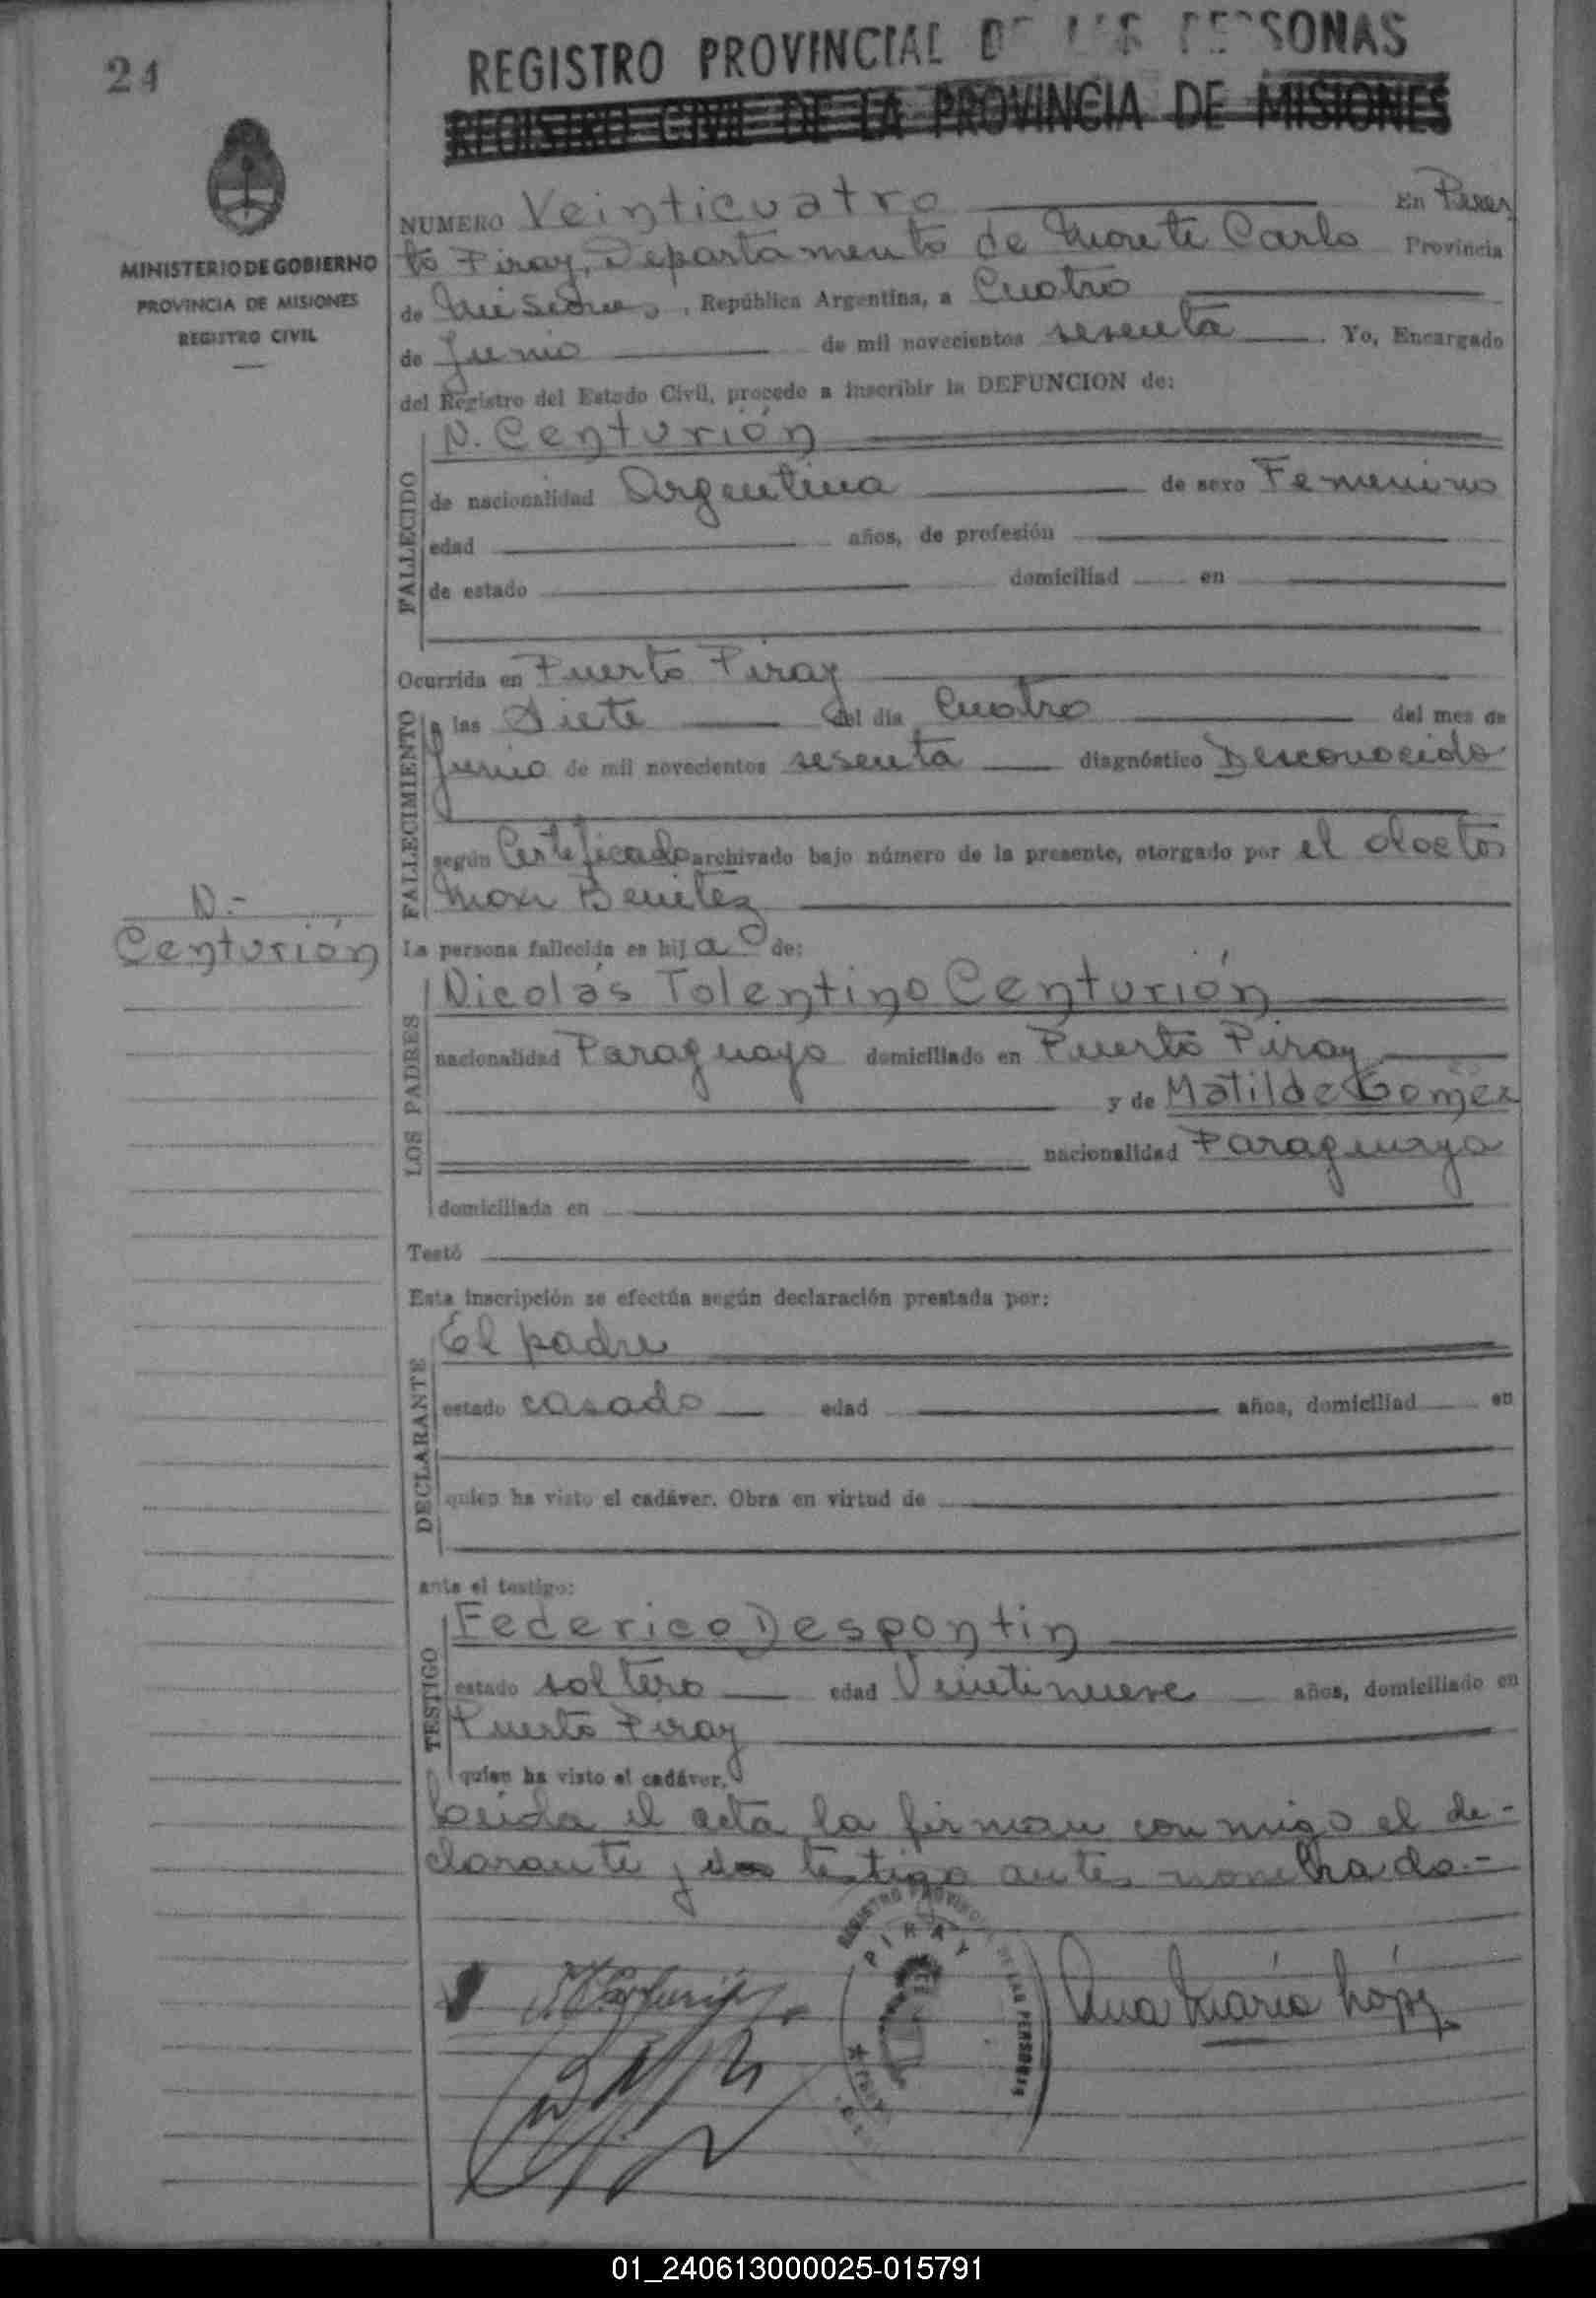 24
REGISTRO PROVINCIAL DE LAS PERSONAS
REGISTRO CIVIL DE LA PROVINCIA DE MISIONES
MINISTERIO DE GOBIERNO
PROVINCIA DE MISIONES
REGISTRO CIVIL
NUMERO Veinticuatro En Puer
to Piray, Departamento de Monte Carlo Provincia
de Misiones, República Argentina, a Cuatro
de Junio de mil novecientos sesenta. Yo, Encargado
del Registro del Estado Civil, procedo a inscribir la DEFUNCION de:
FALLECIDO
N. Centurión
de nacionalidad Argentina de sexo Femenino
edad años, de profesión
de estado domiciliad en
Ocurrida en Puerto Piray
FALLECIMIENTO
a las Siete del día Cuatro del mes de
Junio de mil novecientos sesenta diagnóstico Desconocido
según Certificado archivado bajo número de la presente, otorgado por el doctor
Benitez
N.-
Centurión
La persona fallecida es hija de:
LOS PADRES
Nicolás Tolentino Centurión
nacionalidad Paraguayo domiciliado en Puerto Piray
y de Matilde Gomez
nacionalidad Paraguaya
domiciliada en
Testó
Esta inscripción se efectúa según declaración prestada por:
DECLARANTE
El padre
estado casado edad años, domiciliad en
quien ha visto el cadáver. Obra en virtud de
ante el testigo:
TESTIGO
Federico Despontin
estado soltero edad Veintinueve años, domiciliado en
Puerto Piray
quien ha visto el cadáver.
Leida el acta la firman conmigo el de-
clarante y testigo antes nombrado.-
REGISTRO PROVINCIAL DE LAS PERSONAS
PIRAY
Ana María López
01_240613000025-015791